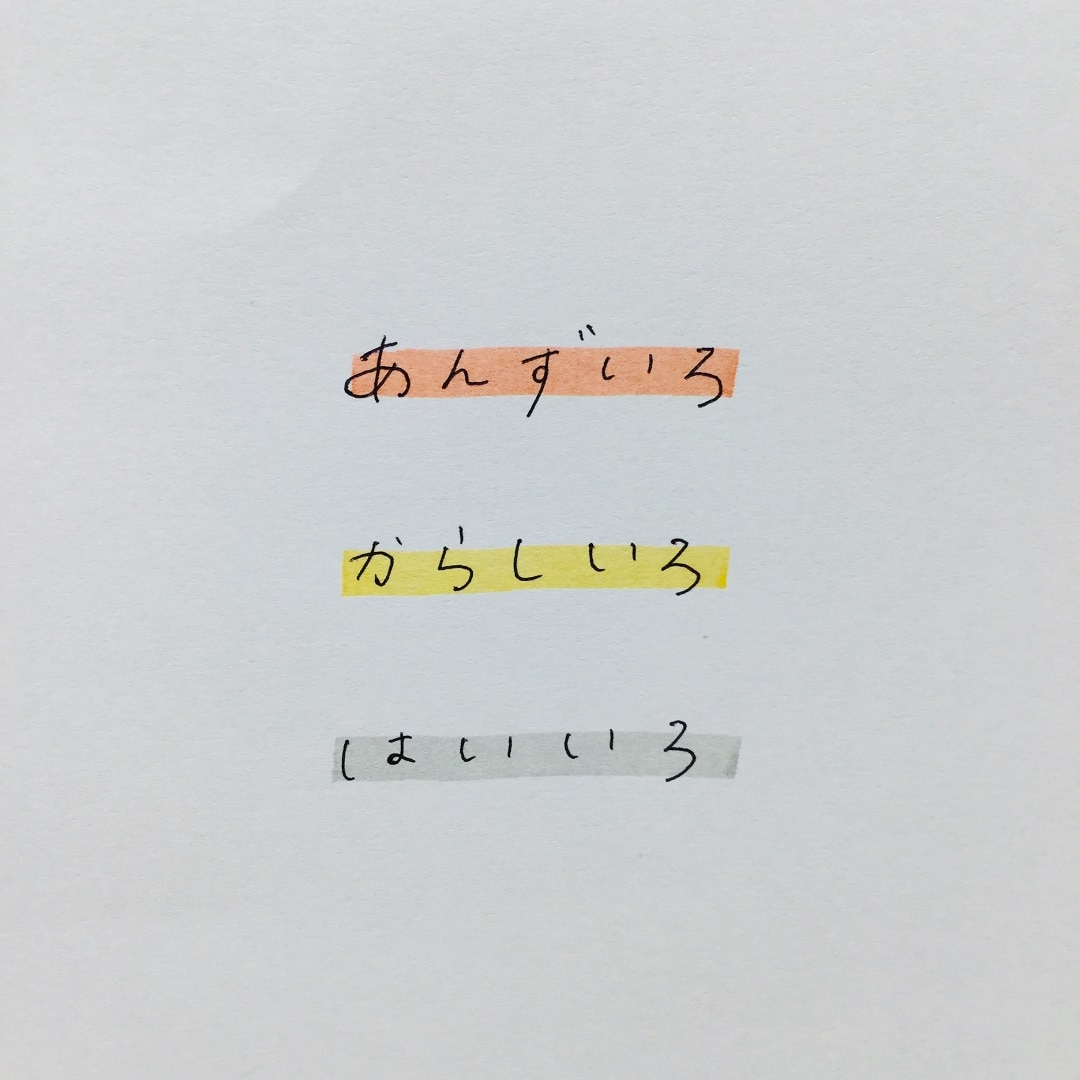 あんずいろ
からしいろ
はいいろ